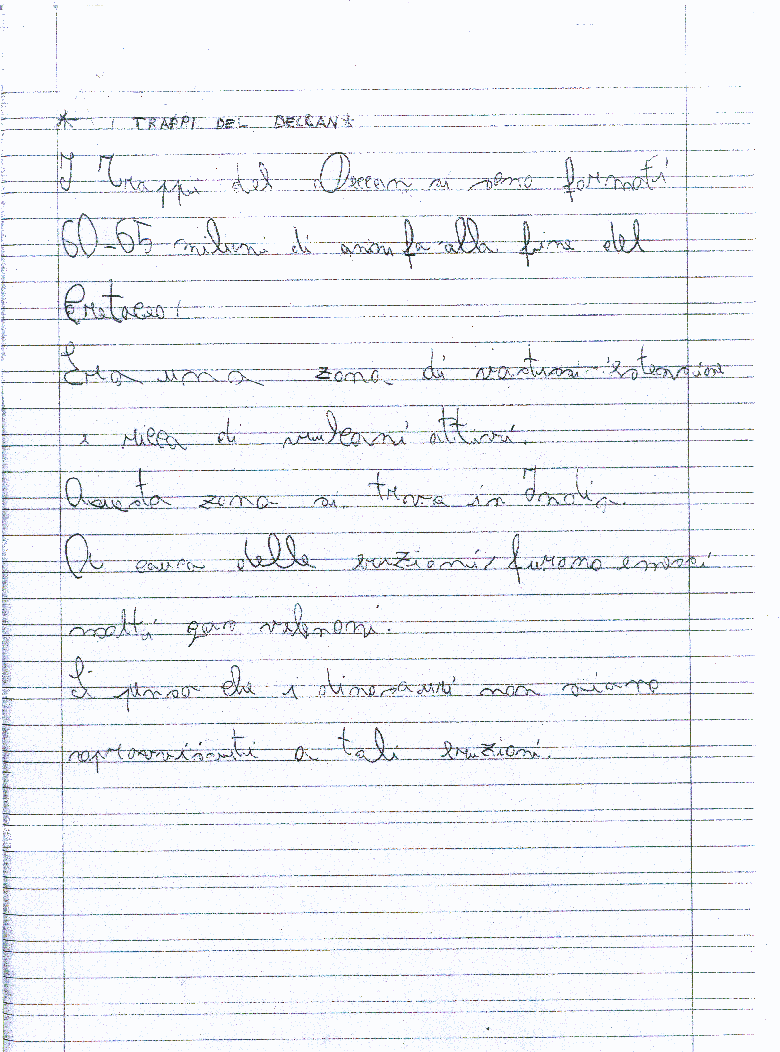 * I TRAPPI DEL DECCAN *
I Trappi del Deccan si sono formati
60-65 milioni di anni fa alla fine del
Cretaceo.
Era una zona di vastissi estensione
e ricca di vulcani attivi.
Questa zona si trova in India.
A causa delle eruzioni, furono emessi
molti gas velenosi.
Si pensa che i dinosauri non siano
sopravvissuti a tali eruzioni.